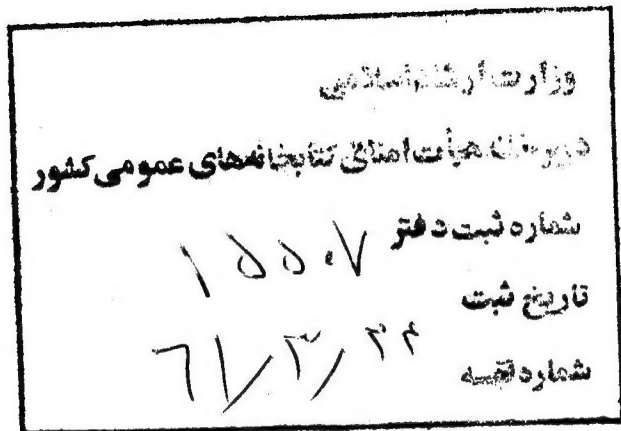 وزارت ارشاد اسلامی
دبیرخانه هیأت امنای کتابخانه‌های عمومی کشور
شماره ثبت دفتر ۱۵۵۰۷
تاریخ ثبت ۶۱/۳/۲۴
شماره قفسه